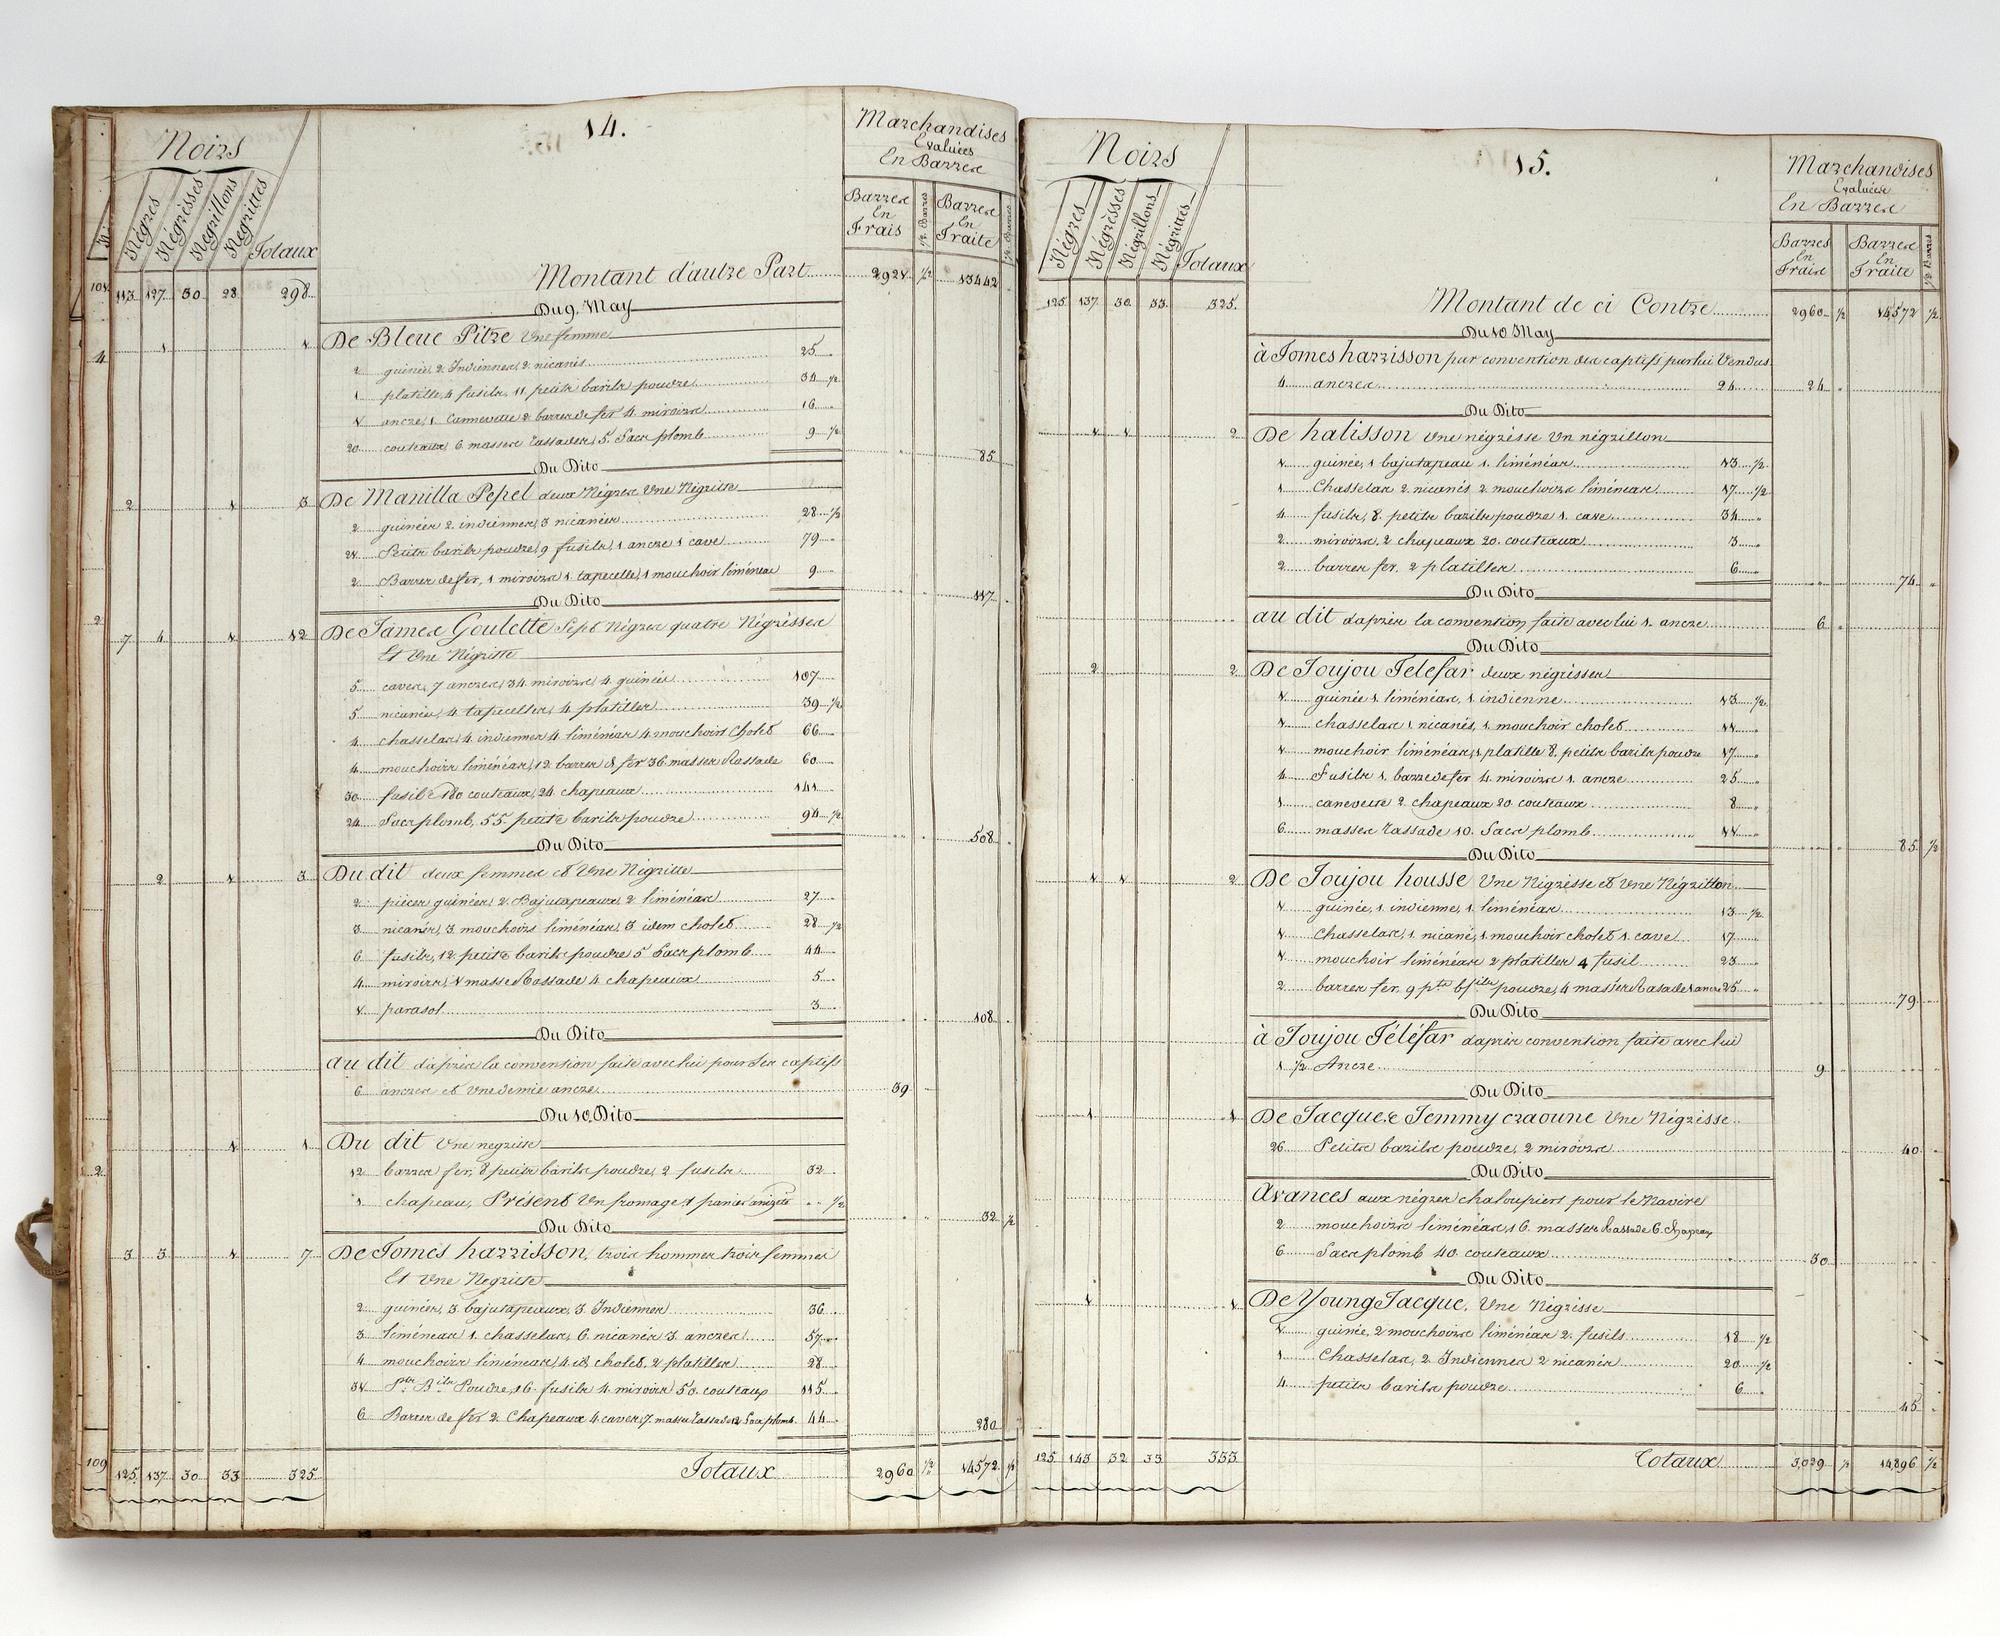 14.
Noirs
Négres
Négrèsses
Négrillons
Négrittes
Totaux
Marchandises
Evaluées
En Barres
Barres En Frais
1/2 Barres
Barres En Traite
1/2 Barres
104 113 127 30 28 298 Montant d'autre Part 2924 1/2 13442
Du 9. May
4 1 1 De Bleue Pitre Une femme
2 guinées, 2 Indiennes, 2 nicanés 25
1 platille, 4 fusils, 11 petits barils poudre 34 1/2
1 ancre, 1 Cannevette 2 barres de fer 4 miroirs 16
20 couteaux, 6 masses rassades, 5 Sacs plomb 9 1/2
85
Du Dito
2 1 3 De Manilla Pepel deux Négres Une Négritte
2 guinées 2 indiennes, 3 nicanées 28 1/2
21 Petits barils poudre, 9 fusils, 1 ancre 1 cave 79
2 Barres de fer, 1 miroirs 1 tapecelle, 1 mouchoir liménéas 9
117
Du Dito
2 7 4 1 12 De James Goulette Sept Négres quatre Négrèsses
Et Une Négritte
5 caves, 7 ancres, 34 miroirs, 4 guinées 107
5 nicanées, 4 tapecelles, 4 platilles 39 1/2
4 chasselas, 4 indiennes 4 liménéas 4 mouchoirs Cholet 66
4 mouchoirs liménéas, 12 barres d fer 36 masses Rassade 60
30 fusils 180 couteaux, 24 chapeaux 141
24 Sacs plomb, 55 petits barils poudre 94 1/2
508
Du Dito
2 1 3 Du dit deux femmes et Une Négritte
2 pièces guinées, 2 Bajutapeaux, 2 liménéas 27
3 nicanés, 3 mouchoirs liménéas, 3 idem cholet 28 1/2
6 fusils, 12 petits barils poudre 5 Sacs plomb 44
4 miroirs, 1 masse Rassade 4 chapeaux 5
1 parasol 3
108
Du Dito
au dit d'après la convention faite avec lui pour ses captifs
6 ancres et Une demie ancre 39
Du 10. Dito
2 1 1 Du dit Une negritte
12 barres fer, 8 petits barils poudre, 2 fusils 32
1 chapeau, Présent Un fromage & panier anizette 1/2
32 1/2
Du Dito
3 3 1 7 De Tomes harrisson, trois hommes trois femmes
Et Une Negritte
2 guinées, 3 bajutapeaux, 3 Indiennes 36
3 liménéas 1 chasselas, 6 nicanés 3 ancres 57
4 mouchoirs liménéas, 4 id. cholet, 2 platilles 28
34 Pts Bils Poudre, 16 fusils 4 miroirs 50 couteaux 115
6 Barres de fer 2 Chapeaux 4 caves, 7 masses rassades 12 Sacs plomb 44
280
109 125 137 30 33 325 Totaux 2960 1/2 14572 1/2
15.
Noirs
Négres
Négrèsses
Négrillons
Négrittes
Totaux
Marchandises
Evaluées
En Barres
Barres En Frais
Barres En Traite
1/2 Barres
125 137 30 33 325 Montant de ci Contre 2960 1/2 14572 1/2
Du 10 May
à Tomes harrisson par convention des captifs par lui Vendus
4 ancres 24 24
Du Dito
1 1 2 De halisson Une négrèsse Un négrillon
1 guinée, 1 bajutapeau 1 liménéas 13 1/2
1 Chasselas 2 nicanés 2 mouchoirs liménéas 17 1/2
4 fusils, 8 petits barils poudre 1 cave 34
2 miroirs, 2 chapeaux 20 couteaux 3
2 barres fer, 2 platilles 6
74
Du Dito
au dit d'après la convention faite avec lui 1 ancre 6
Du Dito
2 2 De Joujou Télefar deux négrèsses
1 guinée 1 liménéas, 1 indienne 13 1/2
1 chasselas 1 nicanés, 1 mouchoir cholet 11
1 mouchoir liménéas, 1 platille 8 petits barils poudre 17
4 Fusils 1 barre de fer 4 miroirs 1 ancre 25
1 canevette 2 chapeaux 20 couteaux 8
6 masses rassade 10 Sacs plomb 11
85 1/2
Du Dito
1 1 2 De Joujou housse Une Négrèsse et Une Négrillon
1 guinée, 1 indienne, 1 liménéas 13 1/2
1 Chasselas, 1 nicané, 1 mouchoir cholet 1 cave 17
1 mouchoir liménéas 2 platilles 4 fusil 23
2 barres fer 9 pts bils poudre, 4 masses Rasade 1 ancre 25
79
Du Dito
à Joujou Téléfar d'après convention faite avec lui
1 1/2 Ancre 9
Du Dito
1 1 De Jacques Jemmy craoune Une Négrèsse
26 Petits barils poudre, 2 miroirs 40
Du Dito
Avances aux négres chaloupiers pour le Navire
2 mouchoirs liménéas, 16 masses Rassade 6 Chapeau
6 Sacs plomb 40 couteaux 30
Du Dito
1 1 De Young Jacque, Une Négrèsse
1 guinée, 2 mouchoirs liménéas 2 fusils 18 1/2
1 Chasselas, 2 Indiennes 2 nicanés 20 1/2
4 petits barils poudre 6
45
125 143 32 33 333 Totaux 3,029 1/2 14,896 1/2